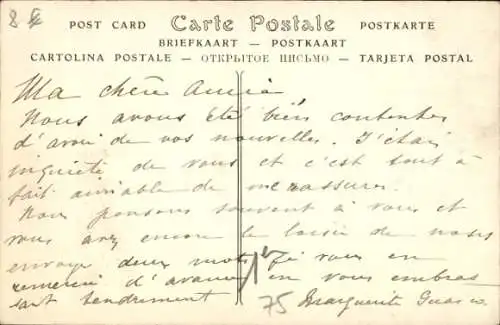 8
POST CARD Carte Postale POSTKARTE
BRIEFKAART — POSTKAART
CARTOLINA POSTALE — ОТКРЫТОЕ ПИСЬМО — TARJETA POSTAL
Ma chère Amie
Nous avons été bien contentes
d'avoir de vos nouvelles. J'étais
inquiète de vous et c'est tout à
fait aimable de me rassurer.
Nous pensons souvent à vous et
vous avez encore le loisir de nous
envoyer deux mots je vous en
remercie d'avance en vous embras
sant tendrement Marguerite
75